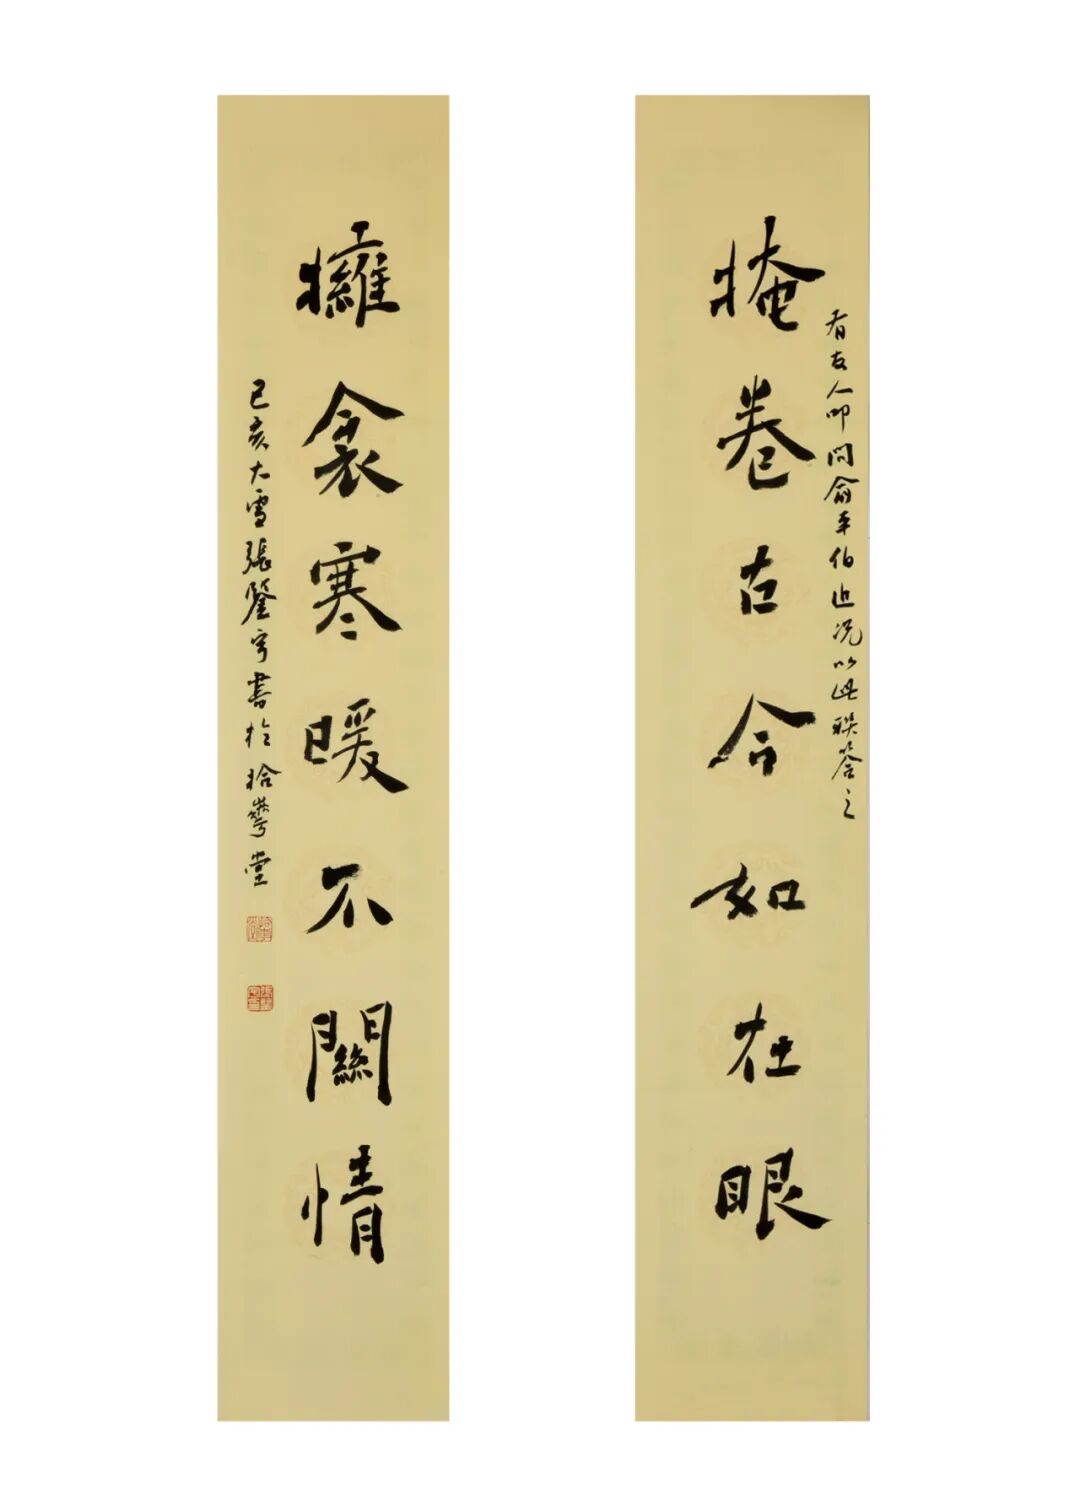 有友人叩問俞平伯近況以此聯答之
掩卷古今如在眼
擁衾寒暖不關情
己亥大雪張鋻宇書於拾堂